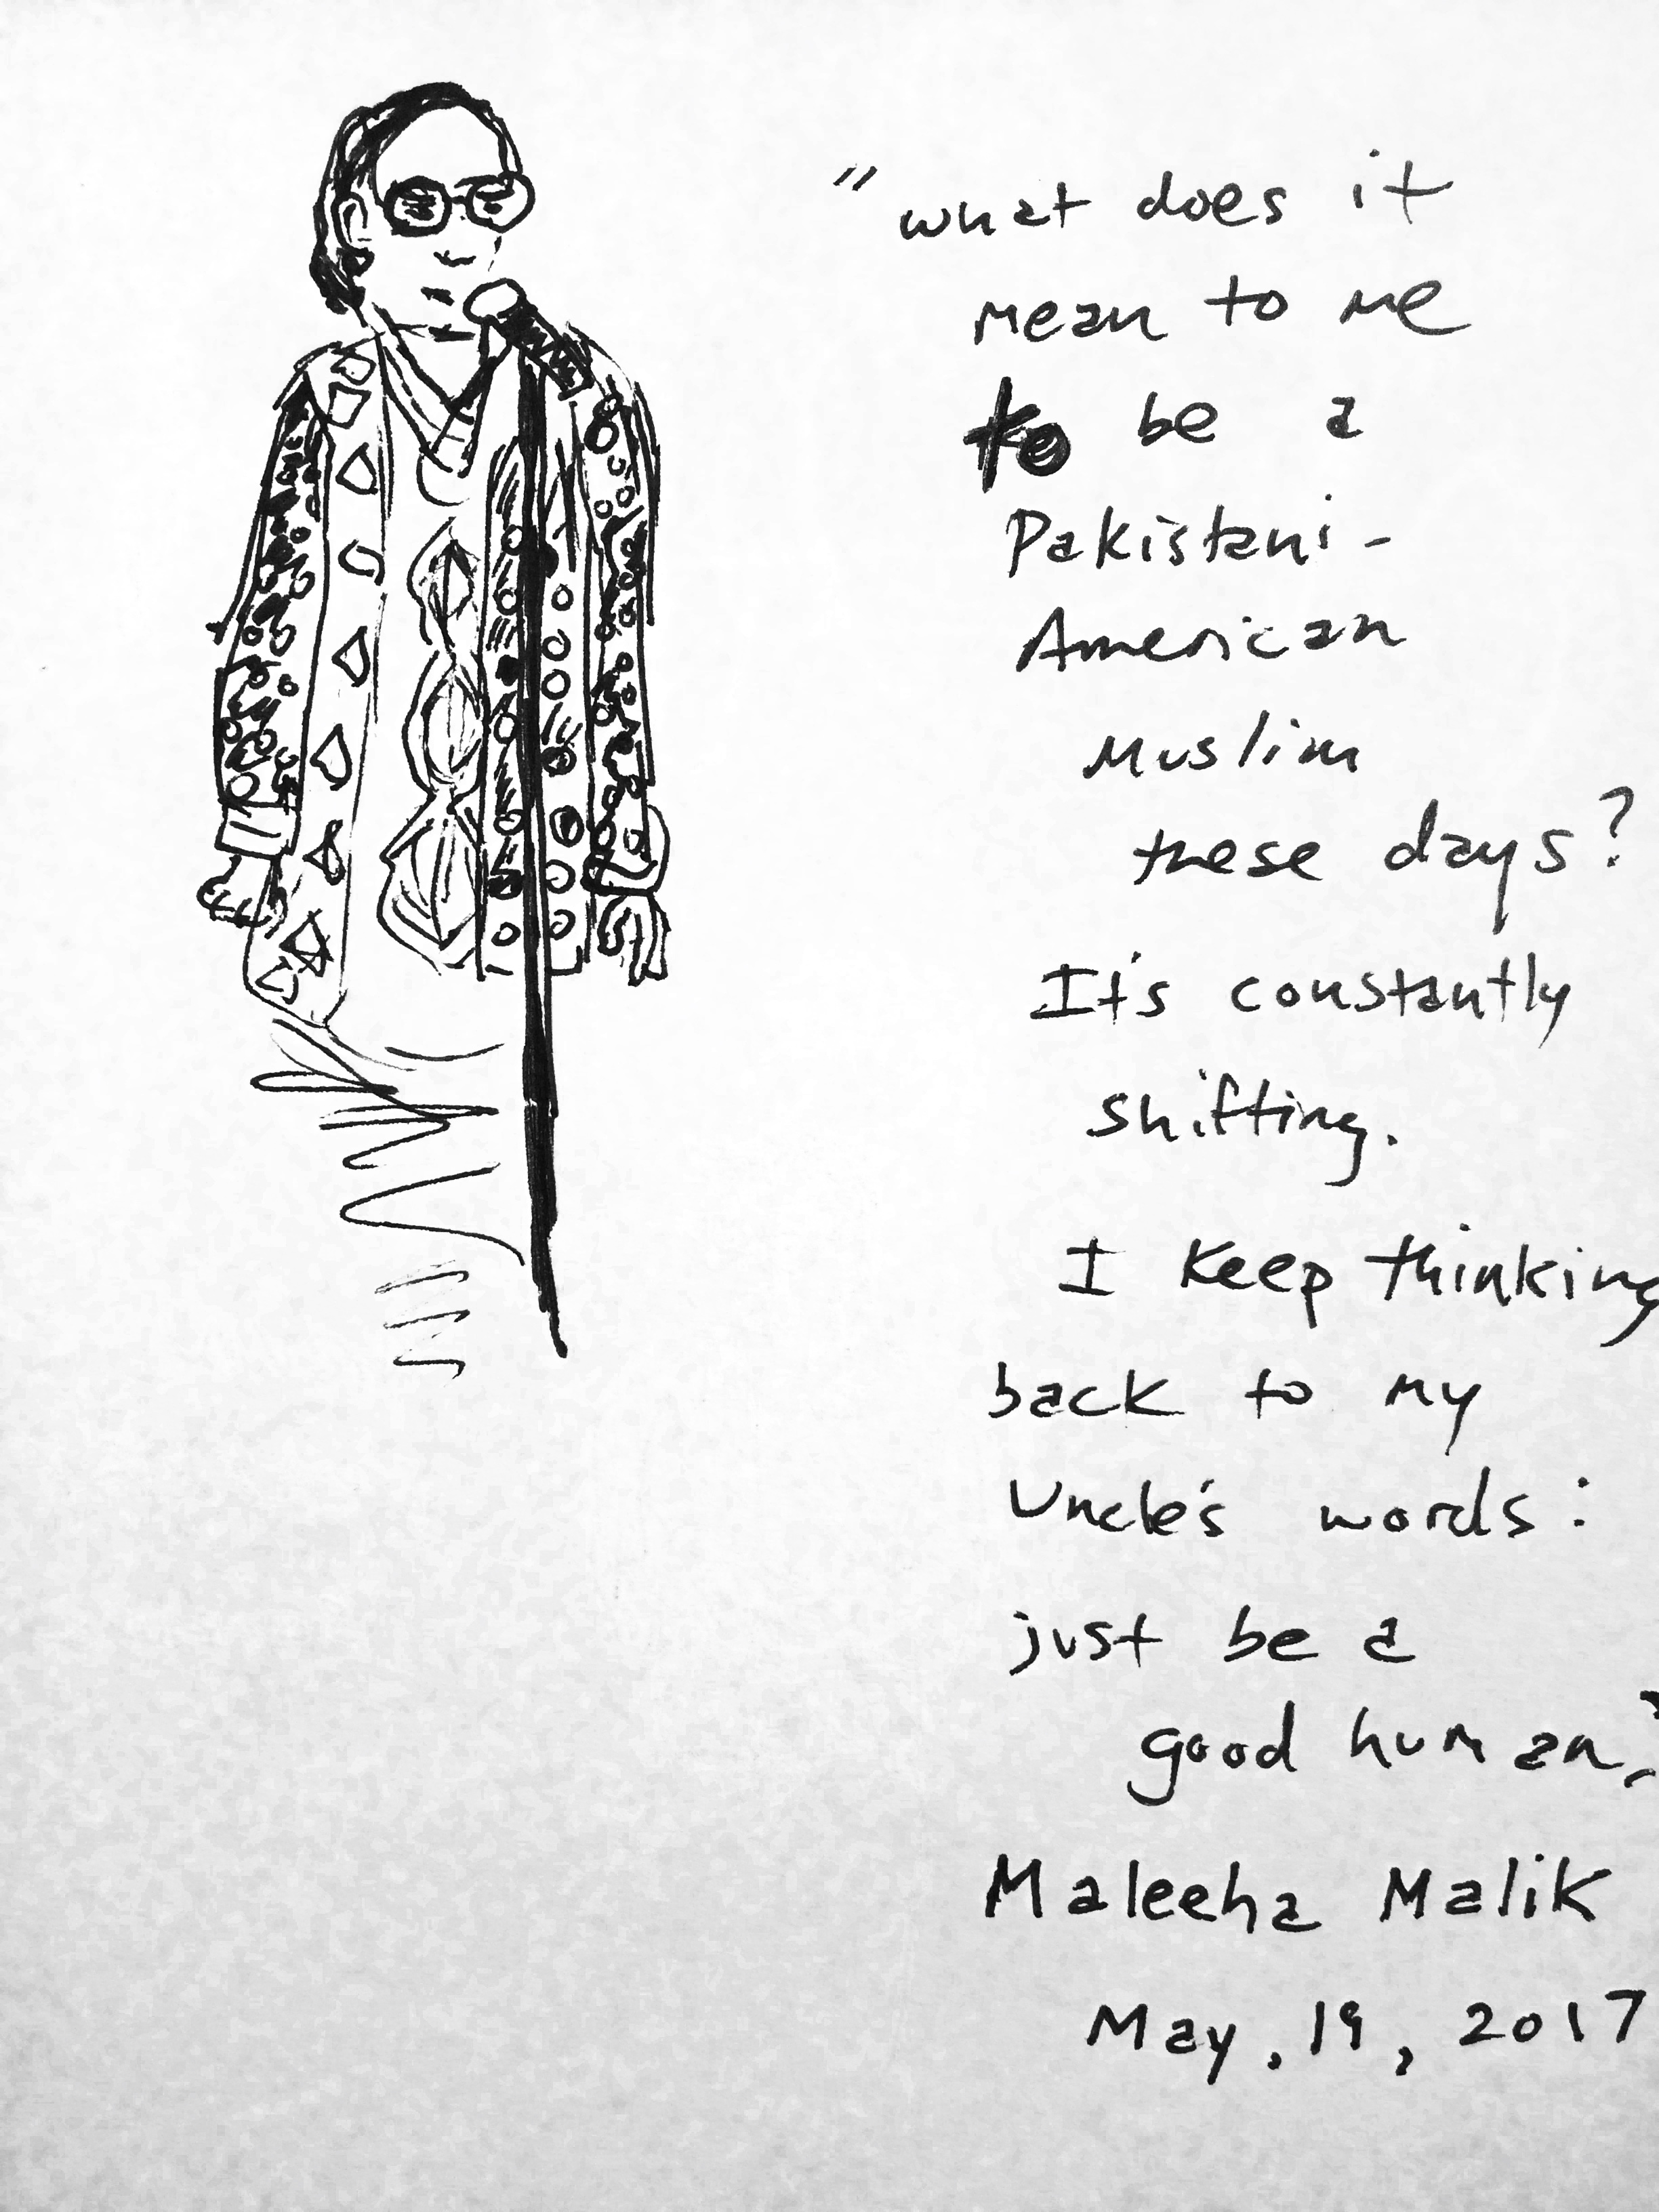 "what does it
mean to me
to be a
Pakistani-
American
Muslim
these days?
It's constantly
shifting.
I keep thinking
back to my
Uncle's words:
just be a
good human."
Maleeha Malik
May. 19, 2017